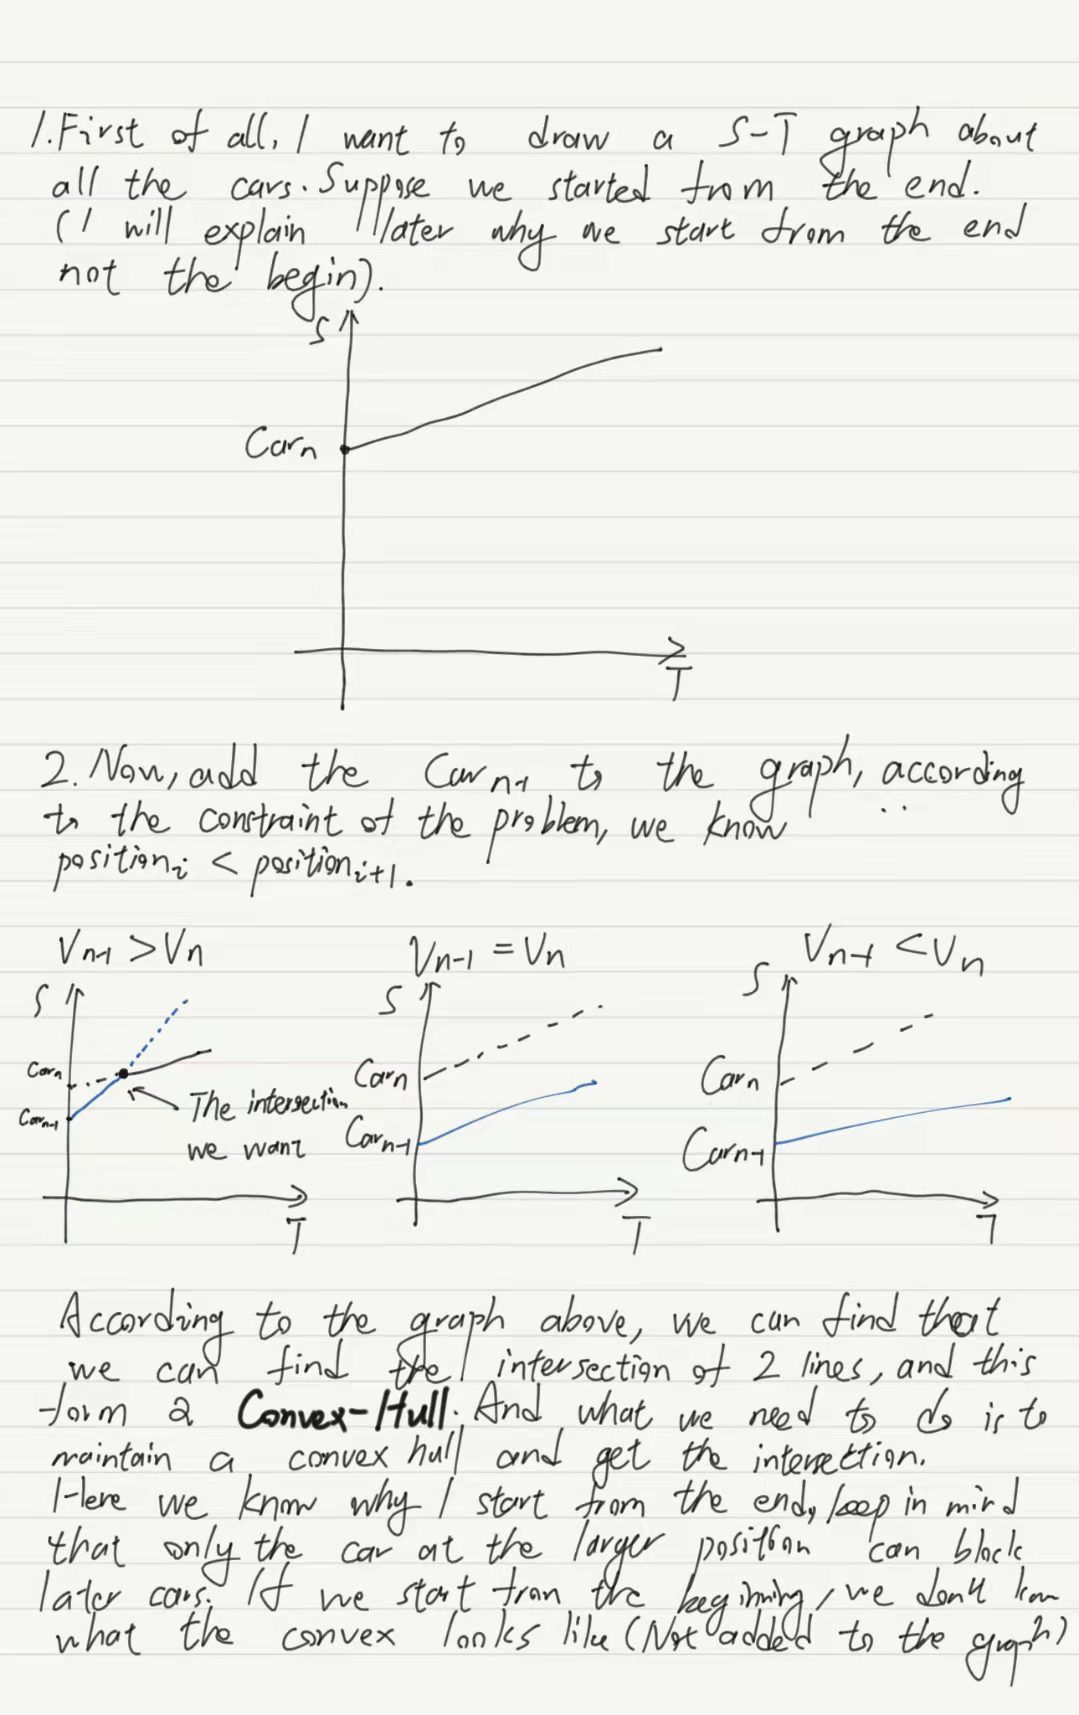 1. First of all, I want to draw a S-T graph about
all the cars. Suppose we started from the end.
(I will explain later why we start from the end
not the begin).
S
Carn
T
2. Now, add the Carn-1 to the graph, according
to the constraint of the problem, we know
positioni < positioni+1.
Vn-1 > Vn
S
Carn
Carn-1
The intersection
we want
T
Vn-1 = Vn
S
Carn
Carn-1
T
Vn-1 < Vn
S
Carn
Carn-1
T
According to the graph above, we can find that
we can find the intersection of 2 lines, and this
form a Convex-Hull. And what we need to do is to
maintain a convex hull and get the intersection.
Here we know why I start from the end, keep in mind
that only the car at the larger position can block
later cars. If we start from the beginning, we don't know
what the convex looks like (Not added to the graph)